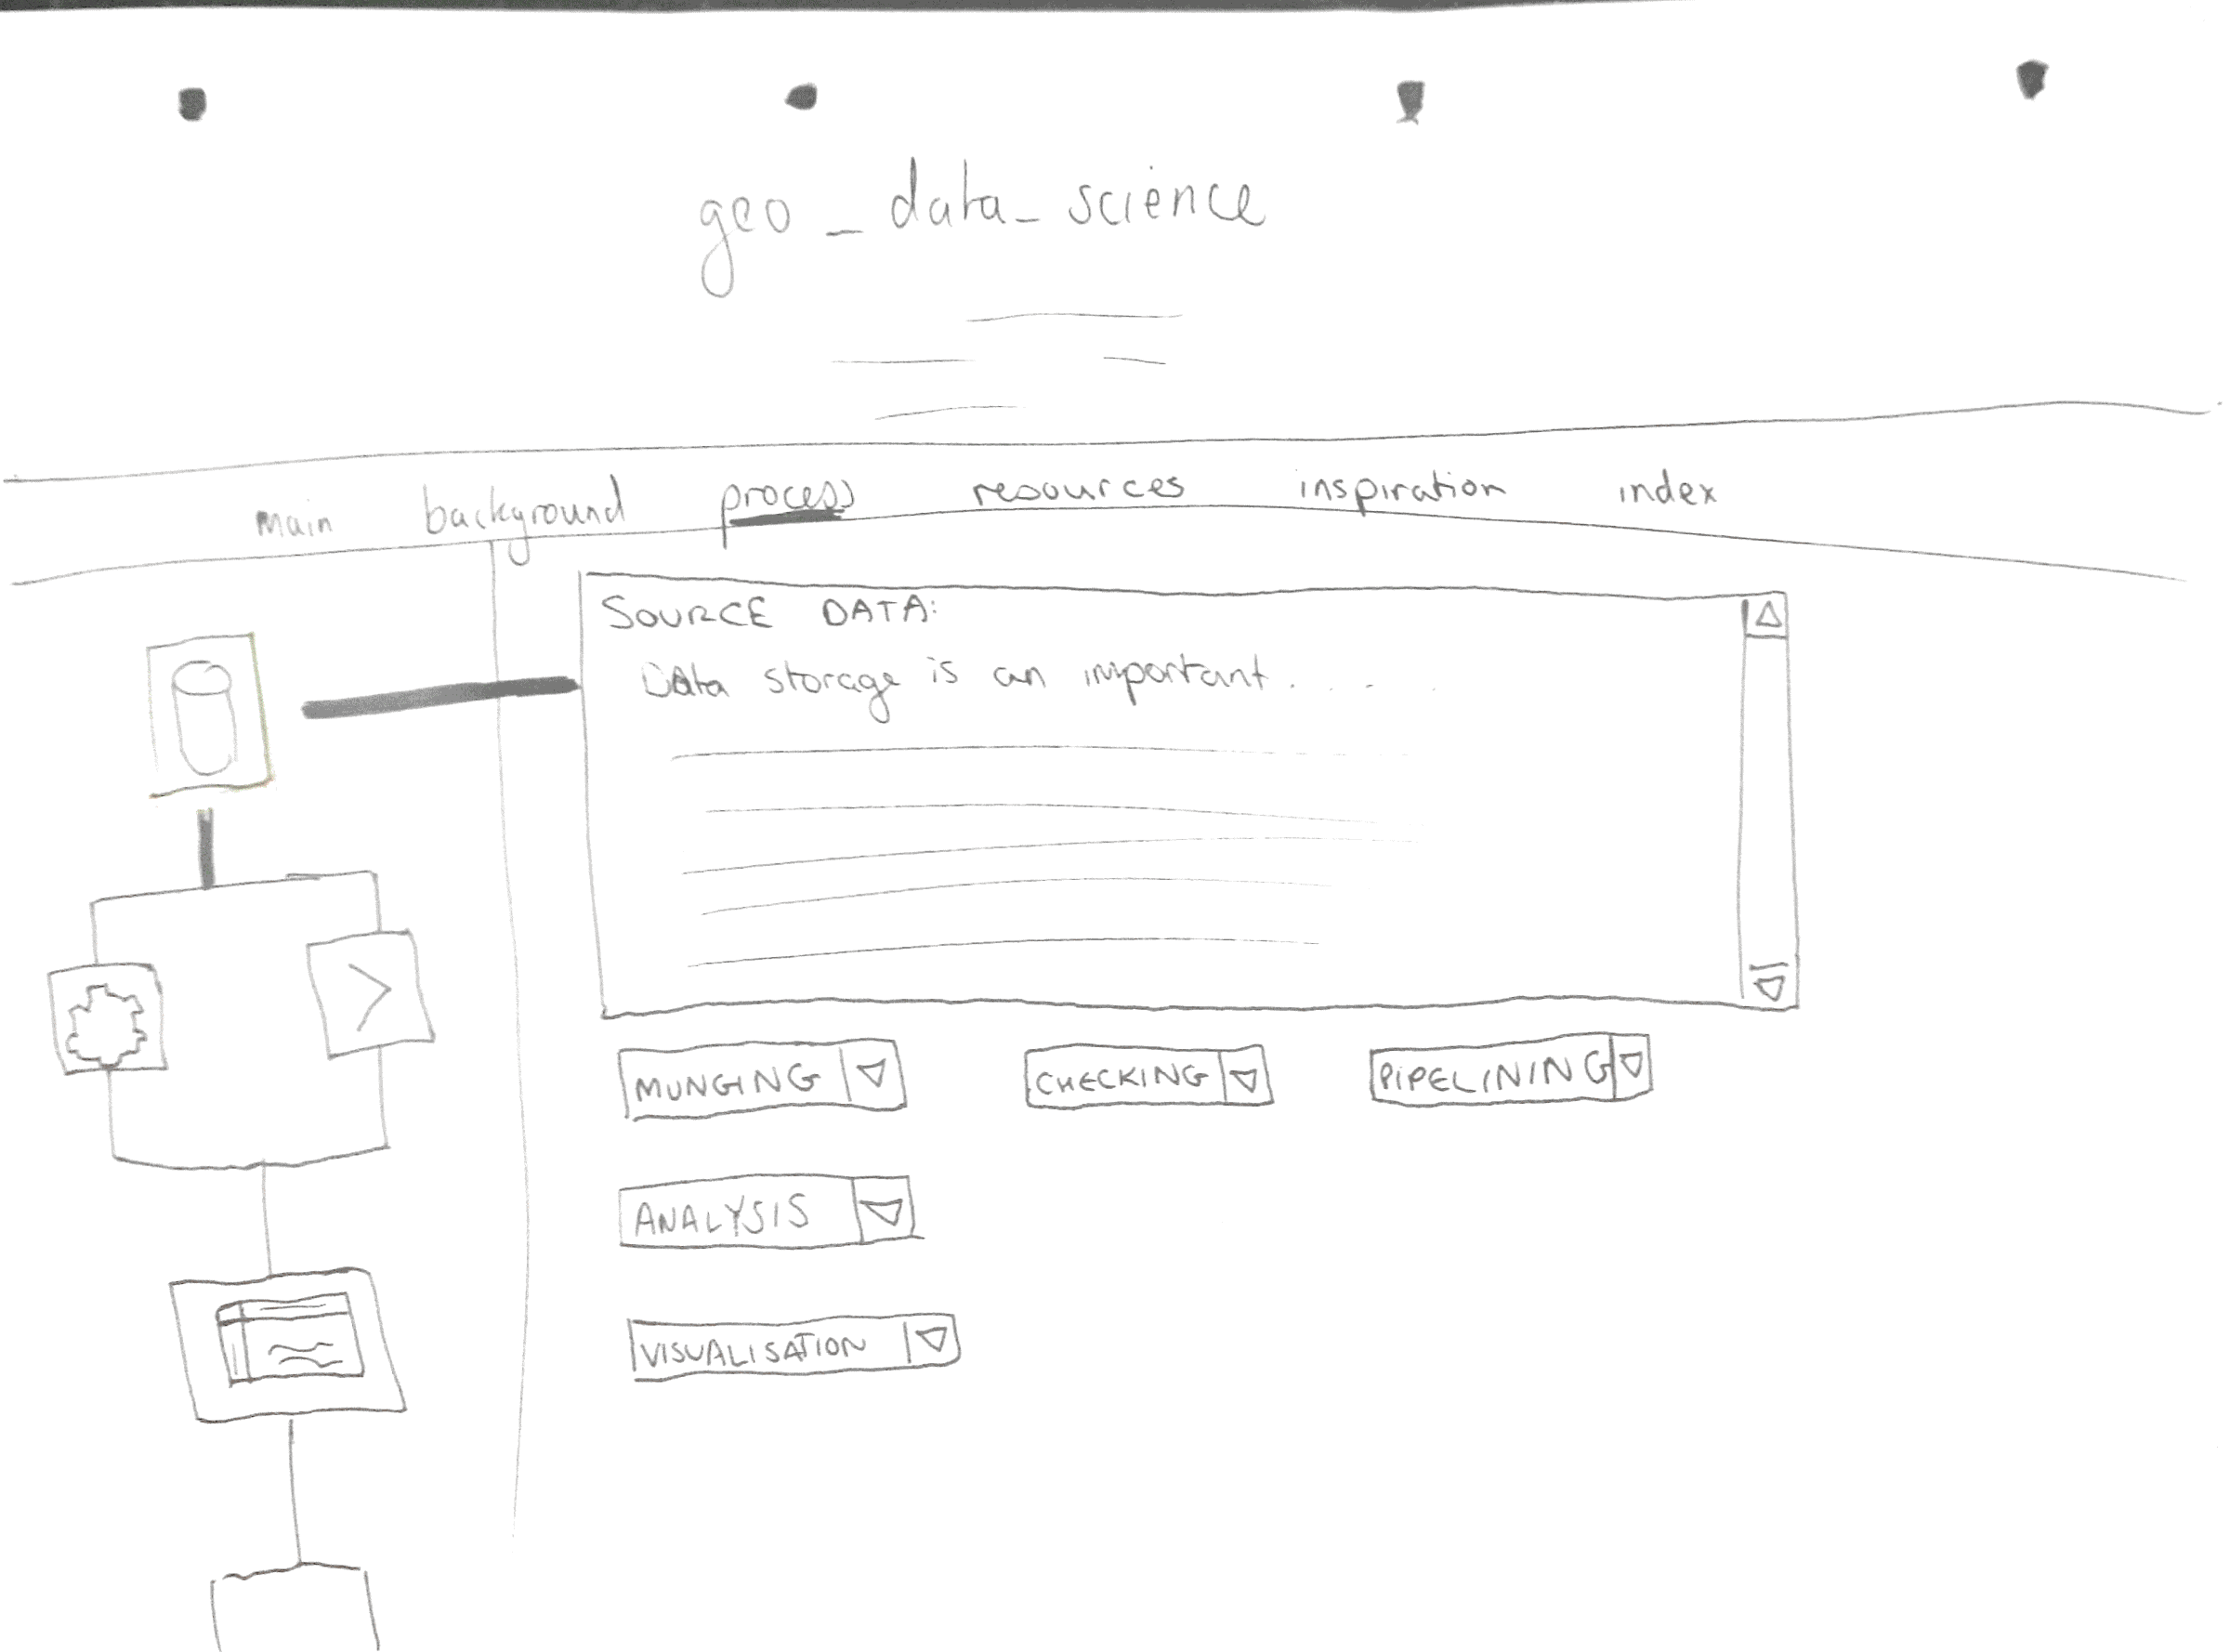 geo_data_science
main background process resources inspiration index
SOURCE DATA:
Data storage is an important. . . .
>
MUNGING CHECKING PIPELINING
ANALYSIS
VISUALISATION